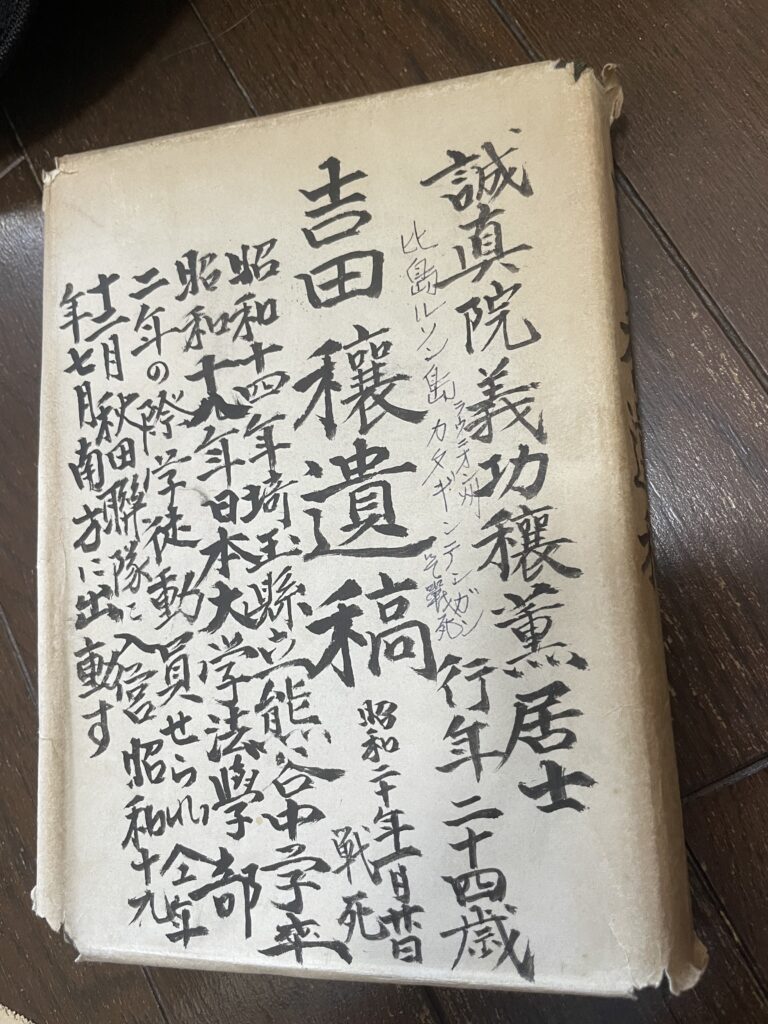 誠真院義功穰薫居士
行年二十四歳
比島ルソン島
ラウニオン州
戰死
吉田穰遺稿
昭和二十年一月
戦死
昭和十四年埼玉縣立熊谷中学卒
昭和十八年日本大学法學部
二年の際学徒動員せられ仝年
十二月秋田聯隊に入営昭和十九
年七月南方に出動す